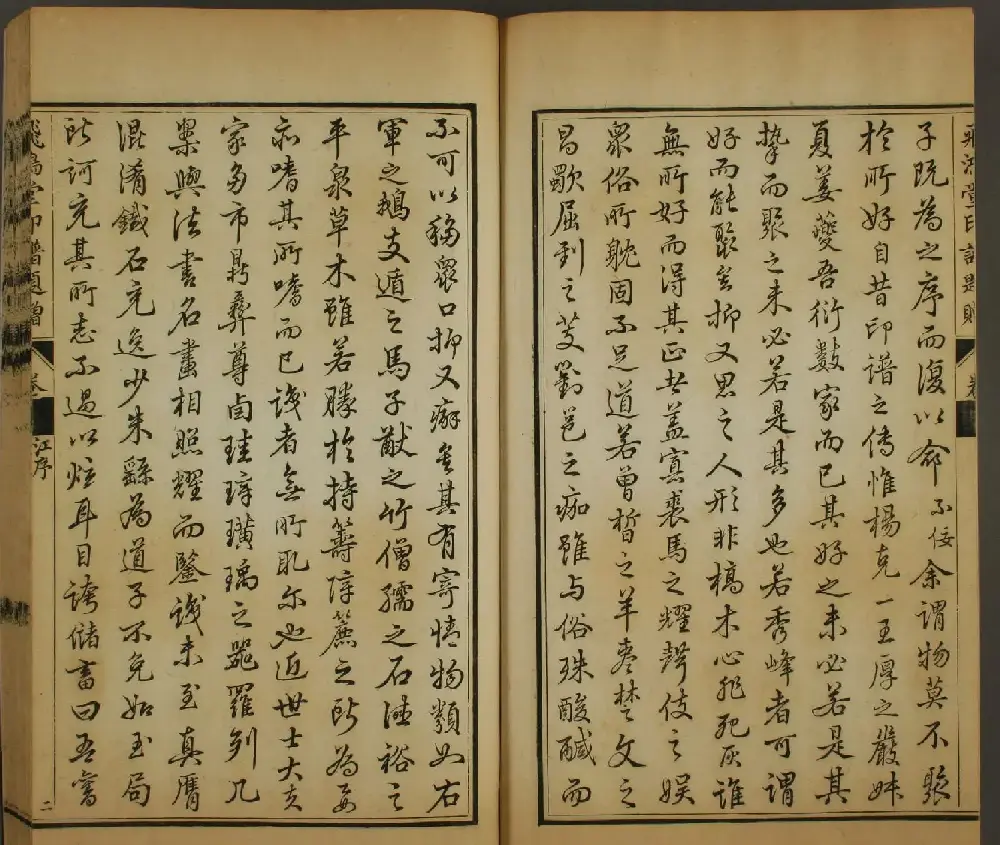 飛鴻堂印譜題贈
卷
子既為之序而復以命不佞余謂物莫不聚
於所好自昔印譜之传惟楊克一王厚之
夏姜夔吾衍數家而已其好之未必若是其
摯而聚之未必若是其多也若秀峰者可謂
好而能聚矣抑又思之人形非槁木心非死灰誰
無所好而得其正者蓋寡裘馬之耀聲伎之娛
眾俗所躭固不足道若曾晳之羊棗楚文之
昌歜屈到之芰劉邕之痂雖与俗殊酸醎而
不可以眾口抑又癖矣其有寄情物類如右
軍之鵝支遁之馬子猷之竹僧孺之石德裕之
平泉草木雖若勝於持籌障簏之所為要
亦嗜其所嗜而已識者無所取尔也近世士大夫
家多市鼎彝尊卣珪璋璜瑀之器羅列几
案與法書名畫相照耀而鑒識未至真贋
混淆鐵石充逸少朱繇為道子不免如玉局
所訶充其所志不過以炫耳目誇儲畜曰吾
飛鴻堂印譜題贈
卷
江序
二